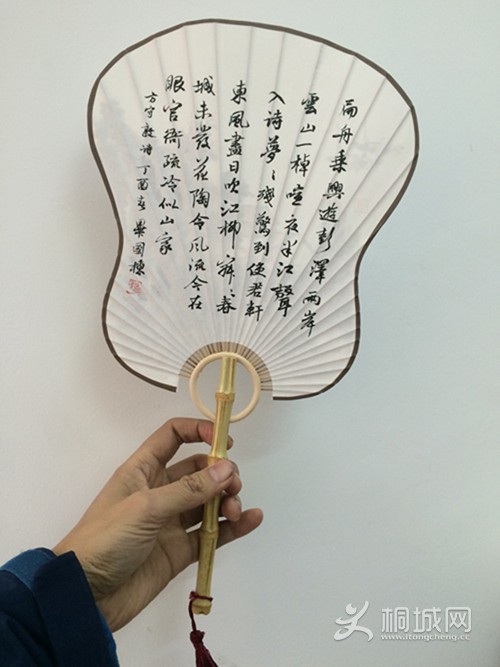 扁舟乗興遊彭澤兩岸
雲山一棹喧夜半江聲
入詩夢夢殘驚到使君軒
東風盡日吹江柳寂寂春
城未發花陶令風流今在
眼官衙疏冷似山家
方守敦詩 丁酉春 吴國標
桐城网
www.itongcheng.cc